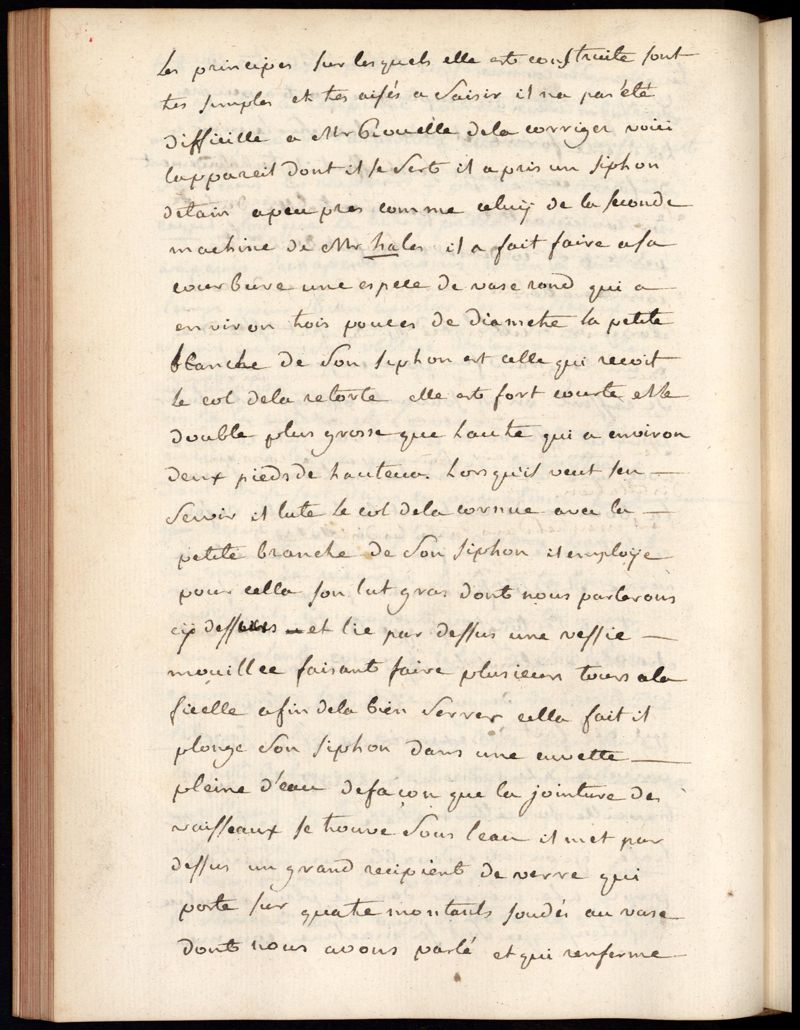 les principes sur lesquels elle est construite sont
tres simples et tres aisés a saisir il na pas été
difficille a Mr Rouelle dela corriger voici
lappareil dont il se sert il a pris un siphon
detain apeu pres comme celuÿ de la seconde
machine de Mr hales il a fait faire a sa
courbure une espece de vase rond qui a
environ trois pouces de diametre la petite
branche de son siphon est celle qui recoit
le col dela retorte elle est fort courte et le
double plus grosse que haute qui a environ
deux pieds de hauteur. Lorsquil veut sen
servir il lute le col dela cornue avec la
petite branche de son siphon il employe
pour cella son lut gras dont nous parlerons
cÿ dessous et lie par dessus une vessie
mouillee faisant faire plusieurs tours a la
ficelle afin dela bien serrer cella fait il
plonge son siphon dans une cuvette
pleine d'eau defaçon que la jointure des
vaisseaux se trouve sous leau il met par
dessus un grand recipient de verre qui
porte sur quatre montants soudés au vase
dont nous avons parlé et qui renferme